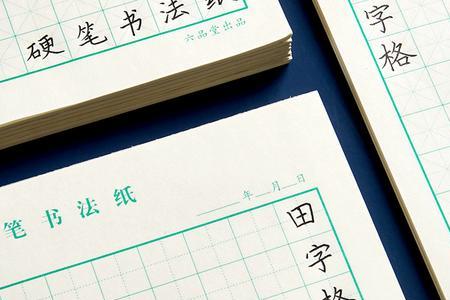 硬笔书法纸
六品堂出品
字格
笔书法纸
年 月 日
田字格